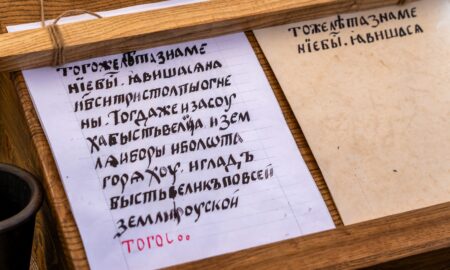 тогожелѣтазнаме
нїебы̑. ꙗвишасѧна
нб̃ситристолпыогне
ны. Тогдажеизасоу
хабыстьвелїꙗ изем
лѧиборыиболота
горѧхоу. игладъ
быстьвеликъповсей
землироусской
тогос..
тожелѣтазнаме
нїебы̑. ꙗвишасѧ